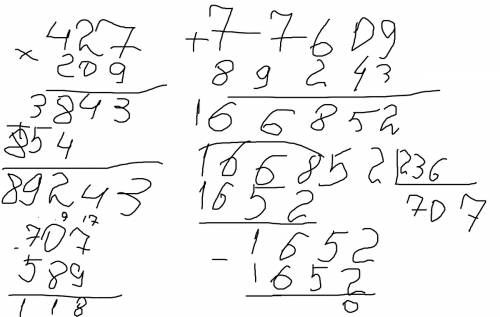 427
× 209
3843
+
854
89243
9 17
- 707
589
118
+ 77609
89243
166852
166852 | 236
1652 707
- 1652
1652
0